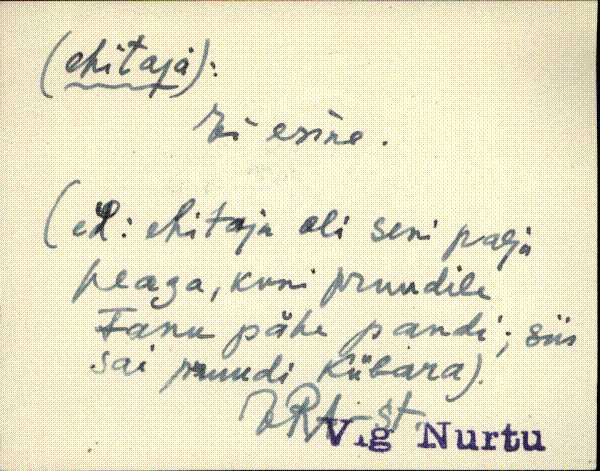 (ehitaja):
Ei esine.
(el: ehitaja oli seni palja
peaga, kuni pruudile
Tanu pähe pandi; siis
sai pruudi Kübara).
V.g Nurtu